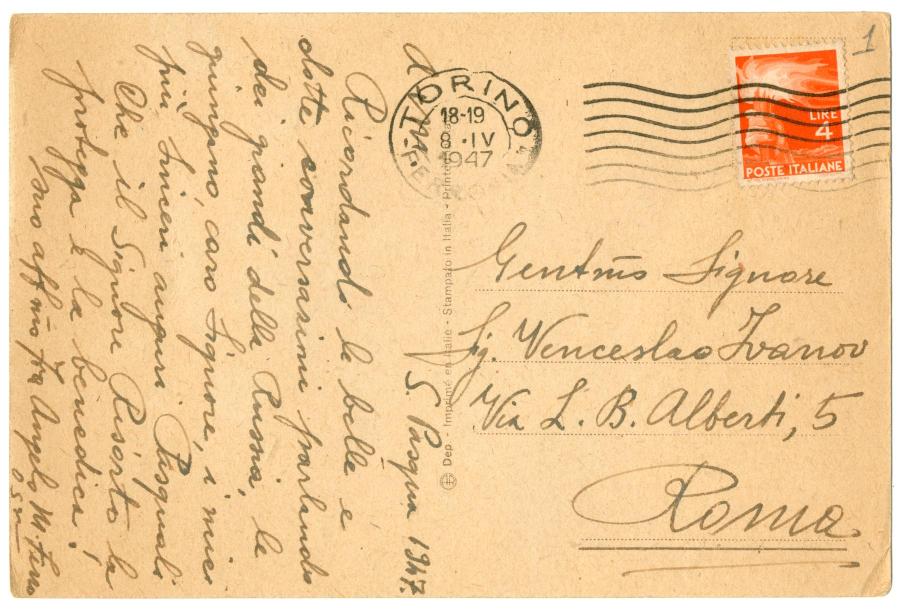 1
TORINO
18-19
8·IV
1947
LIRE
4
POSTE ITALIANE
S. Pasqua 1947.
Ricordando le belle e
dotte conversazioni parlando
dei grandi della Russia, le
giungano, caro Signore, i miei
più sinceri auguri Pasquali
Che il Signore Risorto la
protegga e la benedica!
Suo affmo fra Angelo M.
Dep - Imprimé en Italie - Stampato in Italia - Printed
Gentmo Signore
Sg. Venceslao Ivanov
Via L. B. Alberti, 5
Roma